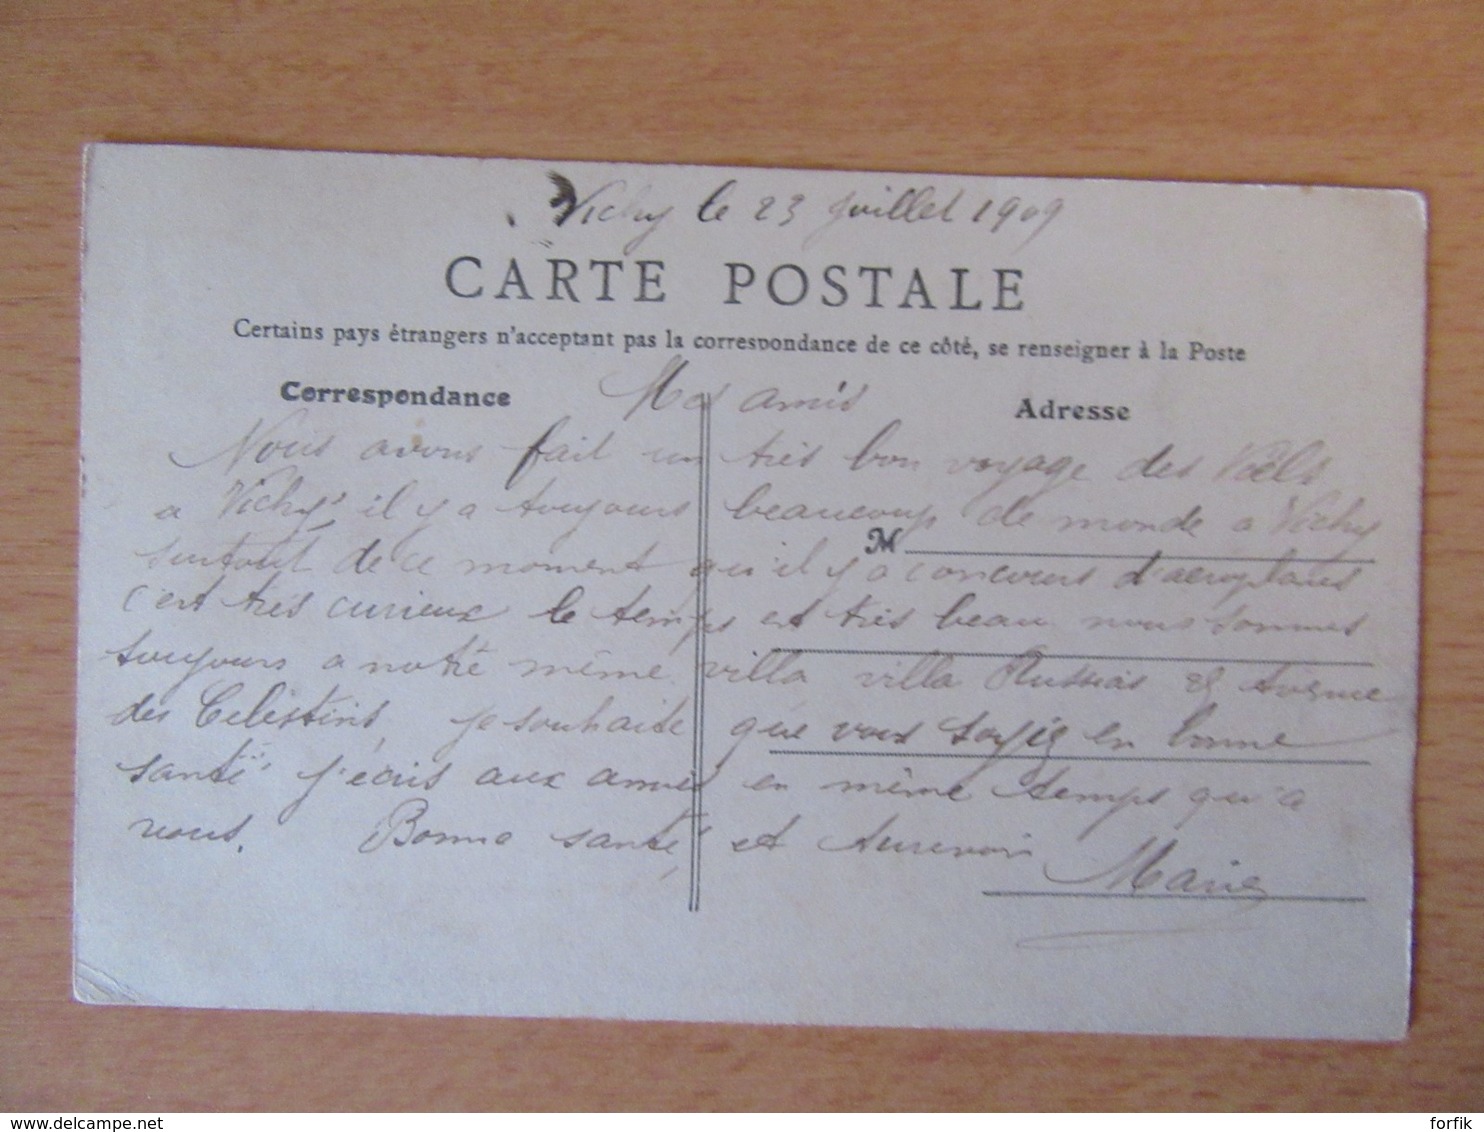 Vichy le 23 Juillet 1909
CARTE POSTALE
Certains pays étrangers n'acceptant pas la correspondance de ce côté, se renseigner à la Poste
Correspondance
Mes amis
Adresse
Nous avons fait un très bon voyage des
a Vichy il y a toujours beaucoup de monde a Vichy
M
surtout de ce moment qu'il y a concours d'aeroplanes
c'est très curieux le temps est très beau nous sommes
toujours a notre même villa villa Avenue
des Celestins, je souhaite que vous soyie en bonne
santé j'ecris aux amies en même temps qu'a
vous. Bonne santé et Aurevoir
Marie
delcampe.net
forfik